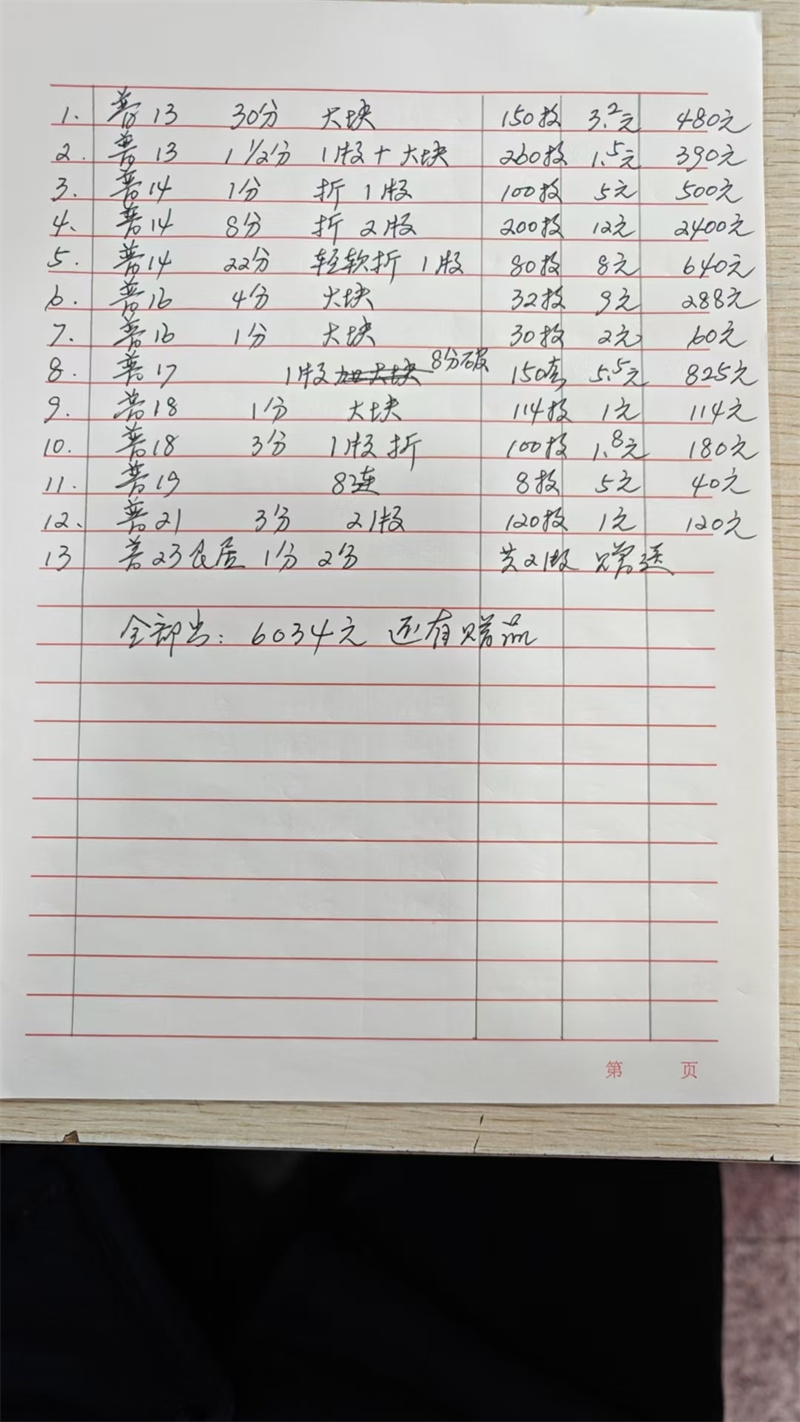 1. 普13 30分 大块 150枚 3.2元 480元
2. 普13 1 1/2分 1版+大块 260枚 1.5元 390元
3. 普14 1分 折1版 100枚 5元 500元
4. 普14 8分 折2版 200枚 12元 2400元
5. 普14 22分 轻软折1版 80枚 8元 640元
6. 普16 4分 大块 32枚 9元 288元
7. 普16 1分 大块 30枚 2元 60元
8. 普17 1版加大块 8分破 150套 5.5元 825元
9. 普18 1分 大块 114枚 1元 114元
10. 普18 3分 1版折 100枚 1.8元 180元
11. 普19 8连 8枚 5元 40元
12. 普21 3分 21版 120枚 1元 120元
13 普23民居 1分 2分 共21版 赠送
全部出: 6034元 还有赠品
第 页